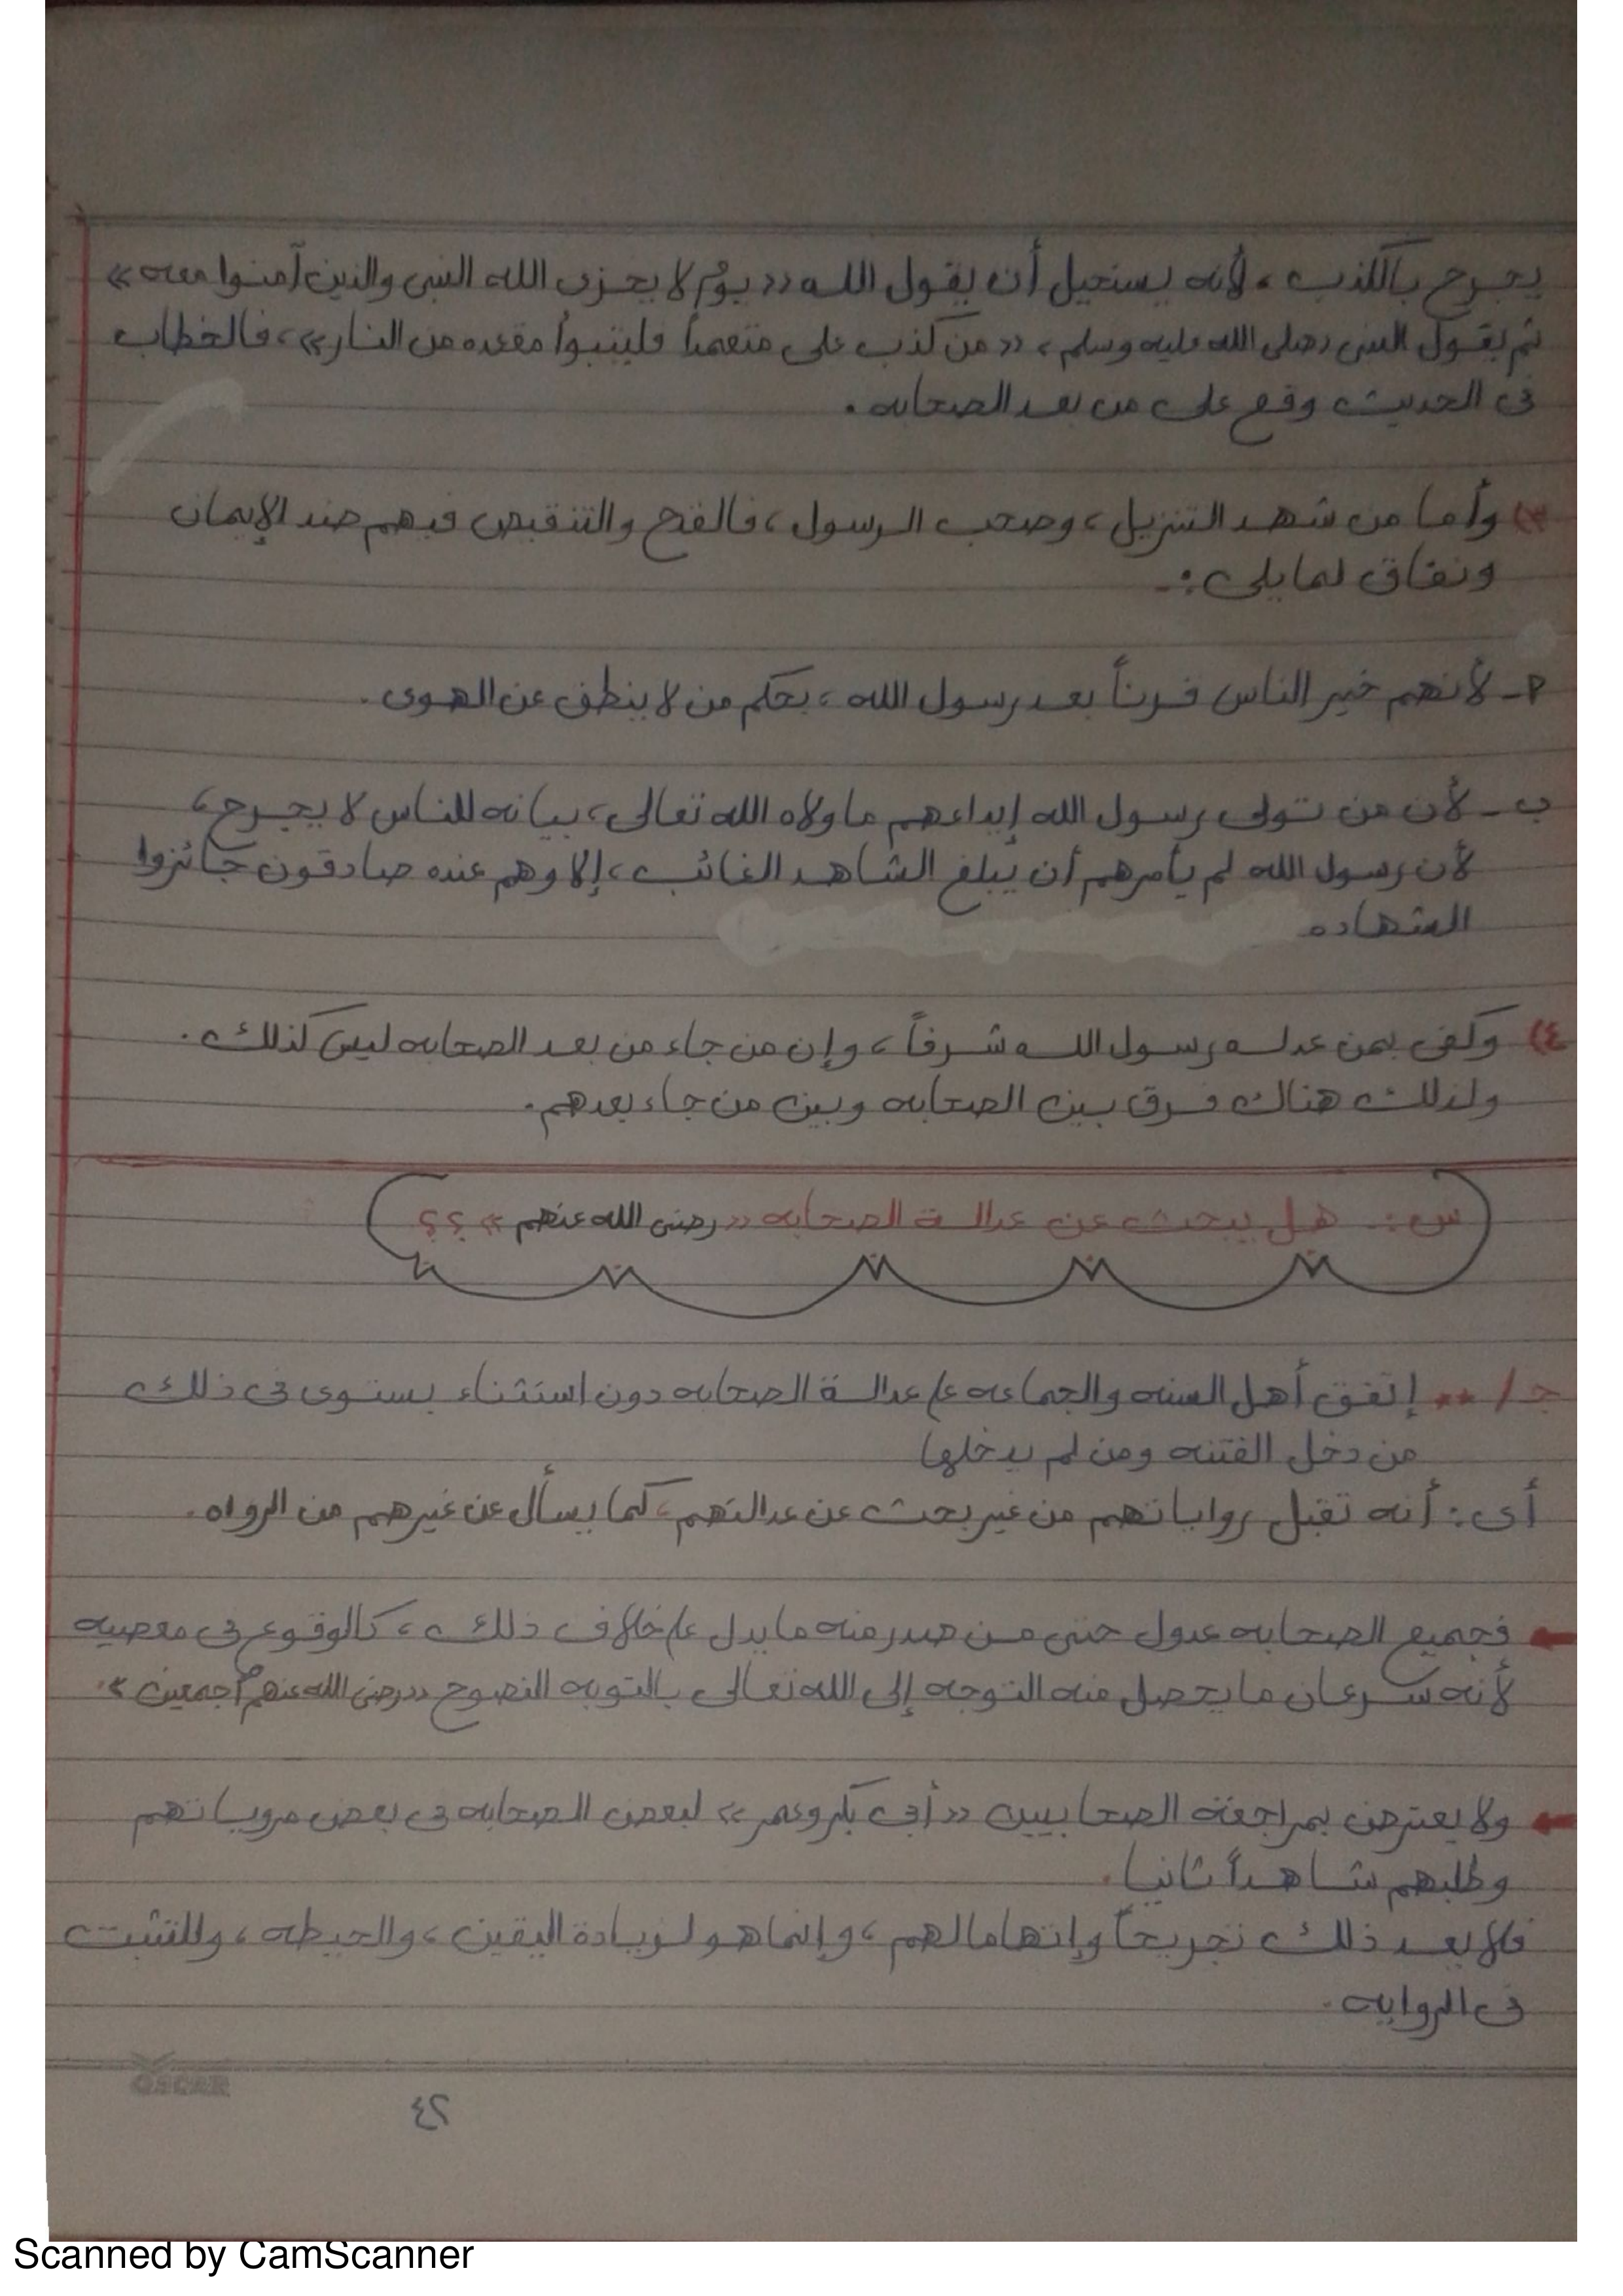 يجرح بالكذب، لأنه يستحيل أن يقول الله «يوم لا يخزى الله النبى والذين آمنوا معه»
ثم يقول النبى "صلى الله عليه وسلم"، «من كذب على متعمداً فليتبوأ مقعده من النار»، فالخطاب
فى الحديث وقع على من بعد الصحابه.
٣) وأما من شهد التنزيل، وصحب الرسول، فالقدح والتنقيص فيهم ضد الإيمان
ونفاق لما يلى :-
أ- لأنهم خير الناس قرناً بعد رسول الله، بحكم من لا ينطق عن الهوى.
ب- لأن من تولى رسول الله إيداعهم ما ولاه الله تعالى، بيانه للناس لا يجرح،
لأن رسول الله لم يأمرهم أن يبلغ الشاهد الغائب، إلا وهم عنده صادقون جائزوا
الشهاده
٤) وكفى بمن عدله رسول الله شرفاً، وإن من جاء من بعد الصحابه ليس كذلك.
ولذلك هناك فرق بين الصحابه وبين من جاء بعدهم.
س: هل يبحث عن عدالة الصحابه «رضى الله عنهم» ؟؟
جـ/ ** إتفق أهل السنه والجماعه ع عدالة الصحابه دون استثناء يستوى فى ذلك
من دخل الفتنه ومن لم يدخلها
أى: أنه تقبل رواياتهم من غير بحث عن عدالتهم، كما يسأل عن غيرهم من الرواه.
← فجميع الصحابه عدول حتى من صدر منه ما يدل ع خلاف ذلك، كالوقوع فى معصيه
لأنه سرعان ما يحصل منه التوجه إلى الله تعالى بالتوبه النصوح «رضى الله عنهم أجمعين».
← ولا يعترض بمراجعة الصحابيين «أبى بكر وعمر» لبعض الصحابه فى بعض مروياتهم
وطلبهم شاهداً ثانيا.
فلا يعد ذلك تجريحاً وإتهاما لهم، وإنما هو لزيادة اليقين، والحيطه، وللتثبت
فى الروايه.
OSCAR
٢٤
Scanned by CamScanner